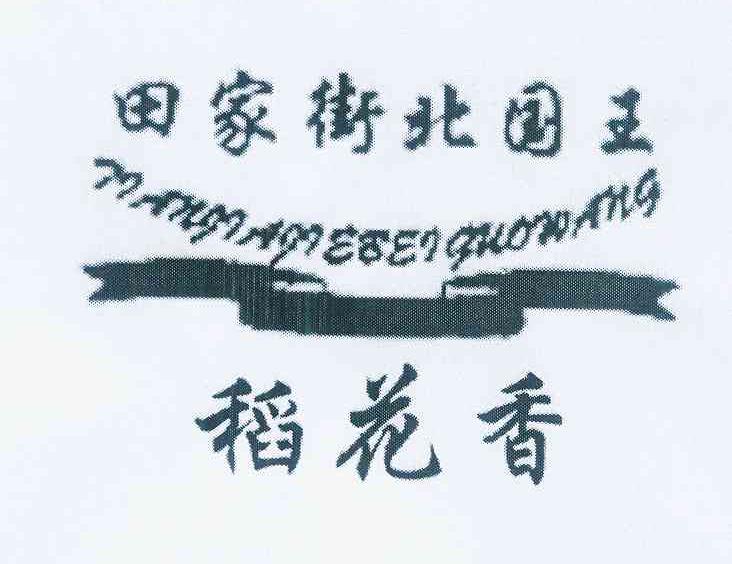 田家街北国王
TIANJIAJIEBEIGUOWANG
稻花香